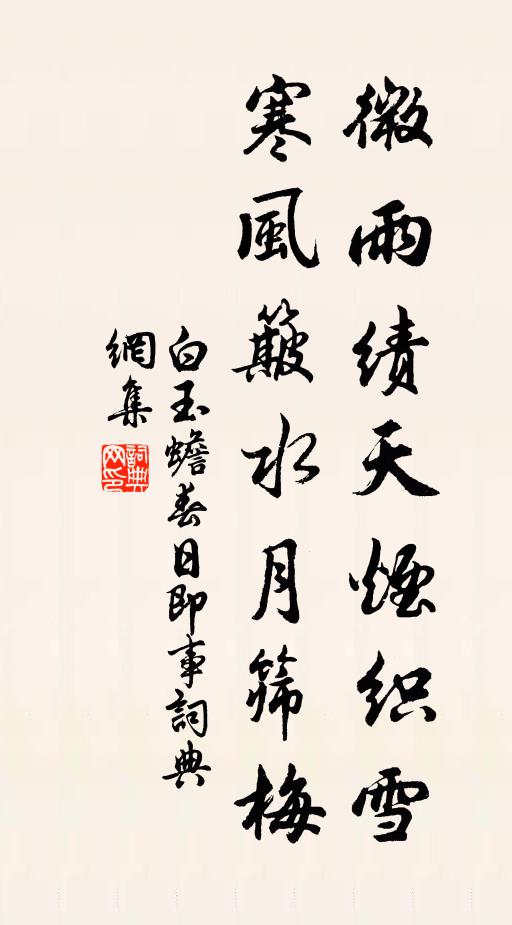 微雨績天煙织雪
寒風簸水月篩梅
白玉蟾春日即事詞典
網集
詞典網印